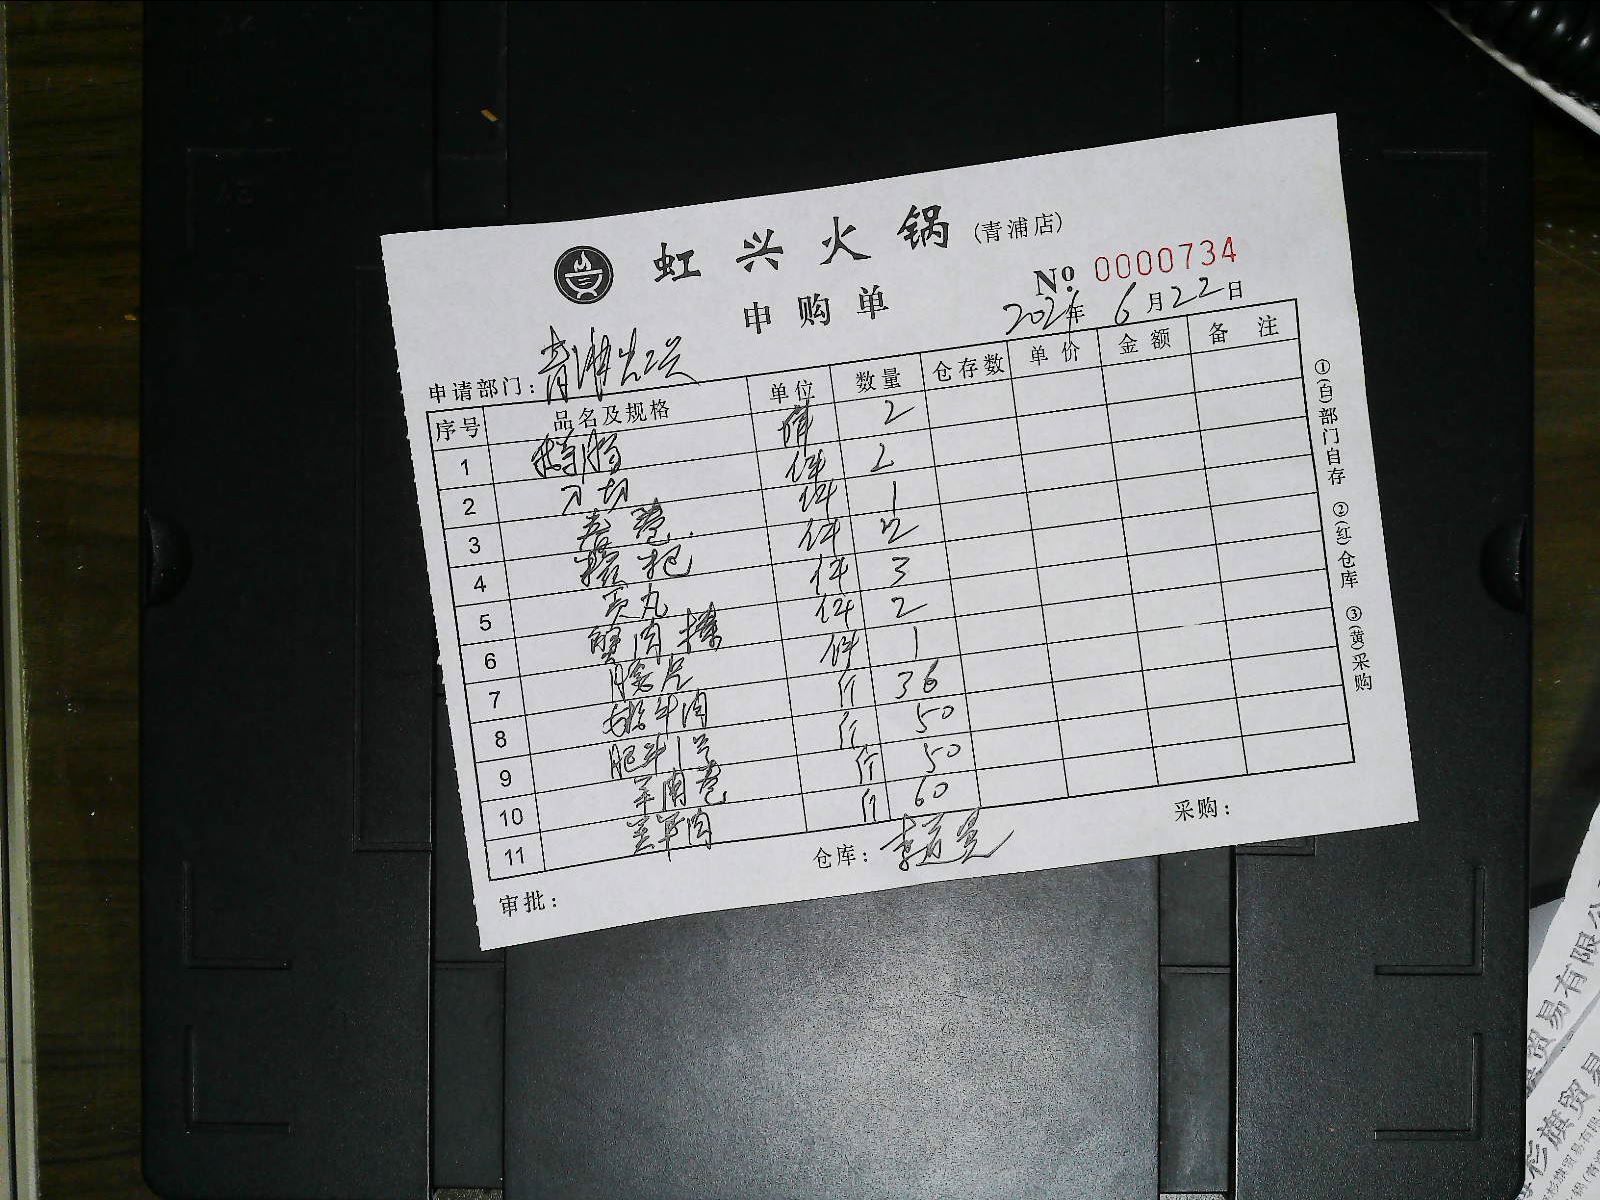 虹兴火锅(青浦店)
申购单
No. 0000734
2024年 6月22日
申请部门：青浦虹兴
序号 品名及规格 单位 数量 仓存数 单价 金额 备注
1 鹅肠 件 2
2 刀切 件 2
3 件 1
4 件 2
5 贡丸 件 3
6 蟹肉棒 件 2
7 件 1
8 牛肉 斤 36
9 肥牛1号 斤 50
10 羊肉卷 斤 50
11 羊肉 斤 60
审批： 仓库： 采购：
①(白)部门自存 ②(红)仓库 ③(黄)采购
贸易有限公
旗贸易